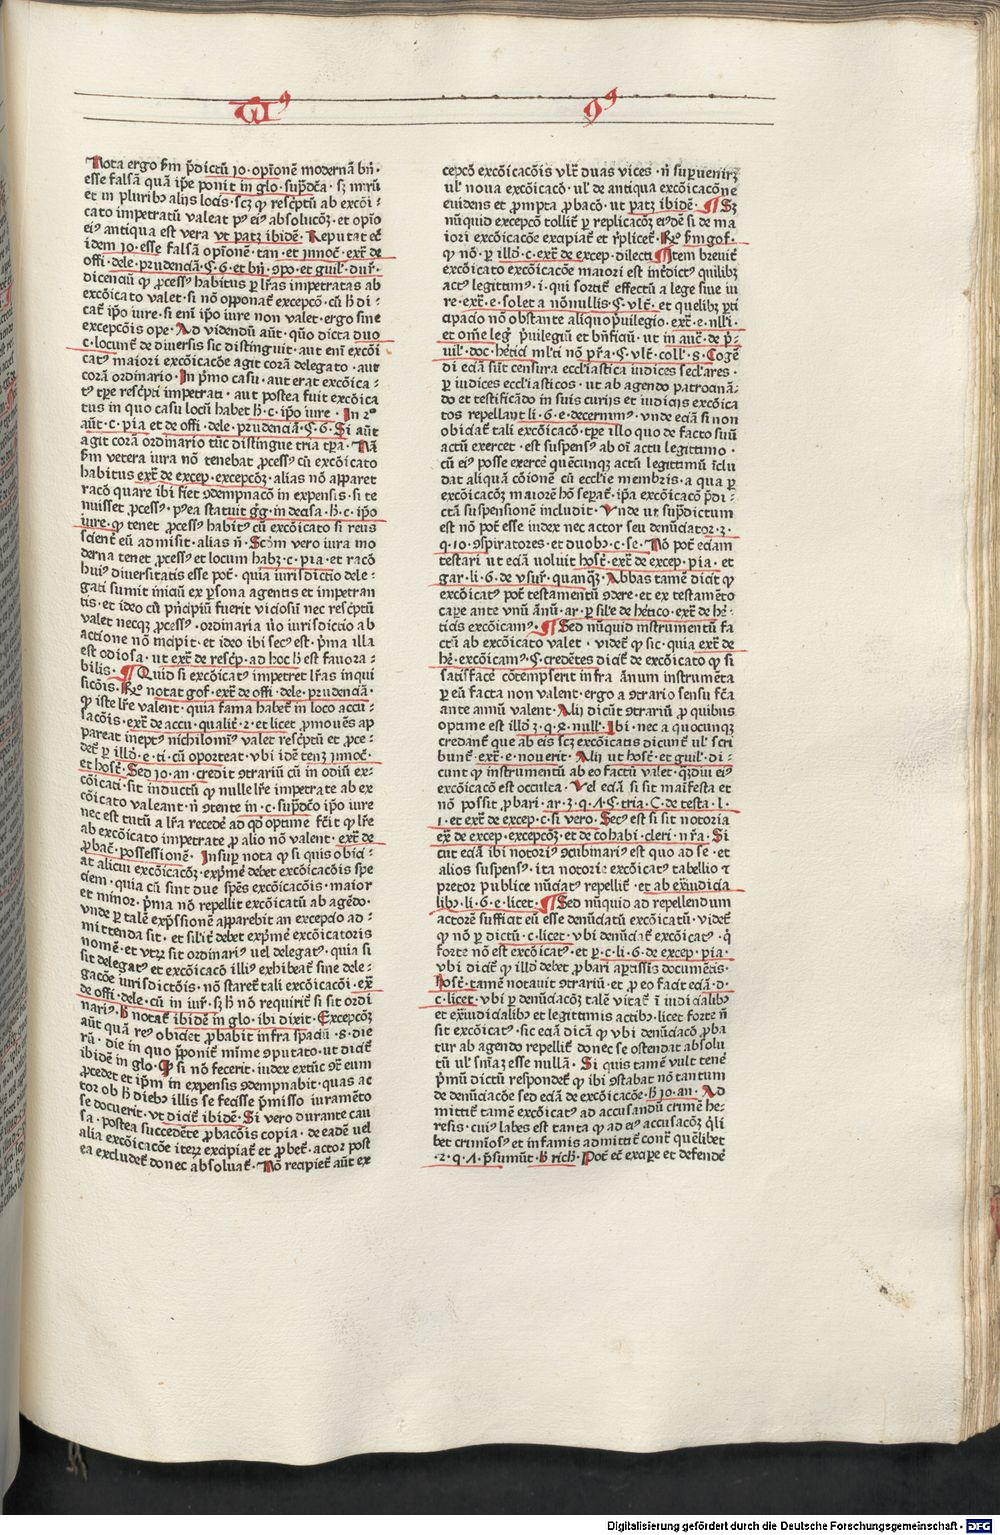 Nota ergo ẜm p̄dictū io· opīonē modernā bn̄·
esse falsā quā ip̄e ponit in glo· sup̄dc̄a·
et in pluribꝰ alijs locis·
cato impetratū valeat
eiꝰ antiqua est vera vt patꝫ ibidē· Reputat ec̄
idem io· esse falsā opīonē
offi· dele· prudenciā· ꝯpo· et guil· dur̄·
dicenciū ꝙ ꝓcessꝰ habitus ꝑ lr̄as impetratas ab
excōicato valet· si nō opponat̄ excepcō·
cat̄ ip̄o iure· si eni ip̄o iure non valet· ergo sine
excepcōis ope· Ad videndū aūt· quō dicta duo
c· locunt̄ de diuersis sic distinguit· aut eni excōi
catꝰ maiori excōicacōe agit corā delegato· aut
corā ordinario· In p̄mo casu· aut erat excōica·
tꝰ tp̄re rescp̄ti impetrati· aut postea fuit excōica
tus in quo casu locū habet h̄· c· ip̄o iure· In 2º
aūt· c· pia et de offi· dele· prudenciā· Si aūt
agit corā ordinario tūc distingue tria tp̄ra· Nā
ẜm vetera iura nō tenebat ꝓcessꝰ cū excōicato
habitus exͣ de excep· excepcōꝫ· alias nō apparet
racō quare ibi fiet ꝯdempnacō in expensis· si te
nuisset ꝓcessꝰ· statuit gͣg· in decisa· h̄· c· ip̄o
iure· ꝙ tenet ꝓcessꝰ habitꝰ cū excōicato si reus
scient̄ eū admisit· alias n̄· Scd̄m vero iura mo
derna tenet ꝓcessꝰ et locum habꝫ· c· pia· et racō
huiꝰ diuersitatis esse pot̄· quia iurisdictio dele·
gati sumit iniciū ex ꝑsona agentis et impetran
tis· et ideo cū pn̄cipiū fuerit viciosū nec rescp̄tū
valet necqꝫ ꝓcessꝰ· ordinaria iurisdictio ab
actione nō incipit· et ideo ibi secꝰ est· p̄ma illa
est odiosa· vt exͣ de rescp̄· ad hoc h̄ est fauora·
bilis· ¶ Quid si excōicatꝰ impetret lr̄as inqui
sicōis· notat gof· exͣ de offi· dele· prudenciā·
ꝙ iste lr̄e valent· quia fama habet̄ in loco accu·
sacōis· exͣ de accu· qualit̄· 2· et licet ꝓmouēs ap
pareat ineptꝰ nichilominꝰ valet rescp̄tū et ꝓce·
det̄ ꝑ illd̄· e· ti· cū oporteat· vbi idē tenꝫ innoc̄·
et host̄· Sed io· an· credit ꝯtrariū cū in odiū ex·
cōicati· sit inductū ꝙ nulle lr̄e impetrate ab ex
cōicato valeant· in c· sup̄dc̄o ip̄o iure
nec est tutū a lr̄a recedē ad qd̄ optime
ab excōicato impetrate ꝑ alio nō valent· exͣ de
ꝓbac̄· possessionē· Insuꝑ nota ꝙ si quis obici·
at alicui excōicacōꝫ· exp̄mē debet excōicacōis spe
ciem· quia cū sint due spēs excōicacōis· maior
et minor· p̄ma nō repellit excōicatū ab agēdo·
vnde ꝑ talē exp̄ssionē apparebit an excepcio ad·
mittenda sit· debet exp̄mē excōicatoris
nomē· et vtrꝫ sit ordinariꝰ uel delegatꝰ· quia si
sit delegatꝰ et excōicacō illiꝰ exhibeat̄ sine dele·
gacōe iurisdictōis· nō staret̄ tali excōicacōi· exͣ
de offi· dele· cū in iur̄· sꝫ h̄ nō requirit̄ si sit ordi
nariꝰ· h̄ notat̄ ibidē in glo· ibi dixit· Excepcōꝫ
aūt quā reꝰ obiciet ꝓbabit infra spaciū· 8· die
rū· die in quo ꝓponit̄ mīme ꝯputato· ut dicit̄
ibidē in glo· ꝙ si nō fecerit· iudex
ꝓcedet et ip̄m in expensis ꝯdempnabit· quas ac
tor ob h̄ diebꝰ illis se fecisse p̄misso iuramēto
se docuerit· vt dicit̄ ibidē· Si vero durante cau
sa· postea succedēte ꝓbacōis copia· de eadē uel
alia excōicacōe iterꝫ excipiat̄ et ꝓbet̄· actor post
ea excludet̄ donec absoluat̄· Nō recipiet̄ aūt ex
cepcō excōicacōis vlt̄ duas vices· n̄ suꝑuenirꝫ
ul̄ noua excōicacō· ul̄ de antiqua excōicacōne
euidens et ꝓmpta ꝓbacō· ut patꝫ ibidē· ¶ Sꝫ
nūquid excepcō tollit̄ ꝑ replicacōꝫ eiꝰdē si de ma
iori excōicacōe excipiat̄ et rͥplicet̄· ẜm gof·
ꝙ nō· ꝑ illd̄· c· exͣ· de excep· dilecti ¶ Item breuit̄
excōicato excōicacōe maiori est int̄dictꝰ quilibꝫ
actꝰ legittimꝰ· i· qui sortit̄ effectū a lege siue iu
re· exͣ· e· solet a nōnullis· vlt̄· et quelibꝫ ꝑti
cipacio nō obstante aliquo p̄uilegio· exͣ· e· nlli·
et om̄e leḡ p̄uilegiū et bn̄ficiū· ut in auc̄· de p̄·
uil̄· Coge
di eciā sūt censura eccl̄iastica iudices secl̄ares·
ꝑ iudices eccl̄iasticos· ut ab agendo patrocinā·
do et testificādo in suis curijs et iudicijs excōica
tos repellant li· 6· e· decernimꝰ· vnde eciā si non
obiciat̄ tali excōicacō· tp̄re illo quo de facto suū
actū exercet· est suspensꝰ ab oī actu legittimo·
cū eiꝰ posse exercē quecunqꝫ actū legittimū īclu
dat aliquā cōionē cū eccl̄ie membris· a qua ꝑ
excōicacōꝫ maiorē hō seꝑat̄· ip̄a excōicacō p̄di·
ctā suspensionē includit· Vnde ut sup̄dictum
est nō pot̄ esse iudex nec actor seu denūciator· 3·
q· 10· ꝯspiratores· et duobꝫ· c· se· Nō pot̄ eciam
testari ut eciā voluit host̄· exͣ de excep· pia· et
gar· li· 6· de vsur̄· quanqͣꝫ· Abbas tamē dicit ꝙ
excōicatꝰ pot̄ testamentū ꝯdere· et ex testamēto
caꝑe ante vnū ānū· ar· ꝑ sil̄e de hētico· exͣ de hē·
ticis excōicamꝰ· ¶ Sed nūquid instrumentū fa
ctū ab excōicato valet· videt̄ ꝙ sic· quia exͣ de
hē· excōicamꝰ· credētes dicit̄ de excōicato ꝙ si
satisfacē cōtempserit infra ānum instrumēta
ꝑ eū facta non valent· ergo a ꝯtrario sensu fc̄a
ante annū valent· Alij dicūt ꝯtrariū ꝓ quibus
optime est illd̄ 3· q· 9· nulli· Ibi· nec a quocunqꝫ
credant̄ que ab eis scꝫ excōicatis dicunt̄ ul̄ scri
bunt̄· exͣ· e· nouerit· Alij ut host̄· et guil̄· di·
cunt ꝙ instrumentū ab eo factū valet· qͣꝫdiu eiꝰ
excōicacō est occulta· Vel eciā si sit maīfesta et
nō possit ꝓbari· ar· 3· q· 4· C· tria· C· de testa· l·
1· et exͣ de excep· c· si vero· Secꝰ est si sit notoria
exͣ de excep· excepcōꝫ· et de cohabi· cleri· nr̄a· Si
cut eciā ibi notoriꝰ ꝯcubinariꝰ est quo ad se· et
alios suspensꝰ· ita notorie excōicatꝰ tabellio ⁊
pretor publice nūciatꝰ repellit̄· et ab ex̄iudicia
libꝫ· li· 6· e· licet· ¶ Sed nūquid ad repellendum
actorē sufficit eū esse denūciatū excōicatū· videt̄
ꝙ nō ꝑ dictū· c· licet· vbi denūciat̄ excōicatꝰ· q̄
forte nō est excōicatꝰ· et ꝑ· c· li· 6· de excep· pia·
vbi dicit̄ ꝙ illd̄ debet ꝓbari aꝑtissīs documētis·
host̄· tamē notauit ꝯtrariū· et ꝓ eo facit eciā· d·
c· licet· vbi ꝑ denūciacōꝫ talē vitat̄ ī iudicialibꝫ
et ex̄iudicialibꝫ et legittimis actibꝫ· licet forte n̄
sit excōicatꝰ· sic eciā dicā ꝙ vbi denūciacō ꝓba
tur ab agendo repellit̄ donec se ostendat absolu
tū ul̄ sn̄iaꝫ esse nullā· Si quis tamē vult tenē
p̄mū dictū respondet̄ ꝙ ibi ꝯstabat nō tantum
de denūciacōe sed eciā de excōicacōe· h̄ io· an· Ad
mittit̄ tamē excōicatꝰ ad accusandū crimē he·
resis· cuiꝰ labes est tanta ꝙ ad eiꝰ accusacōꝫ qͥli
bet crimiosꝰ et infamis admittit̄ contͣ quēlibet
2· q· 4· p̄sumūt· h̄ rich̄· Pot̄ ec̄ exciꝑe et defendē